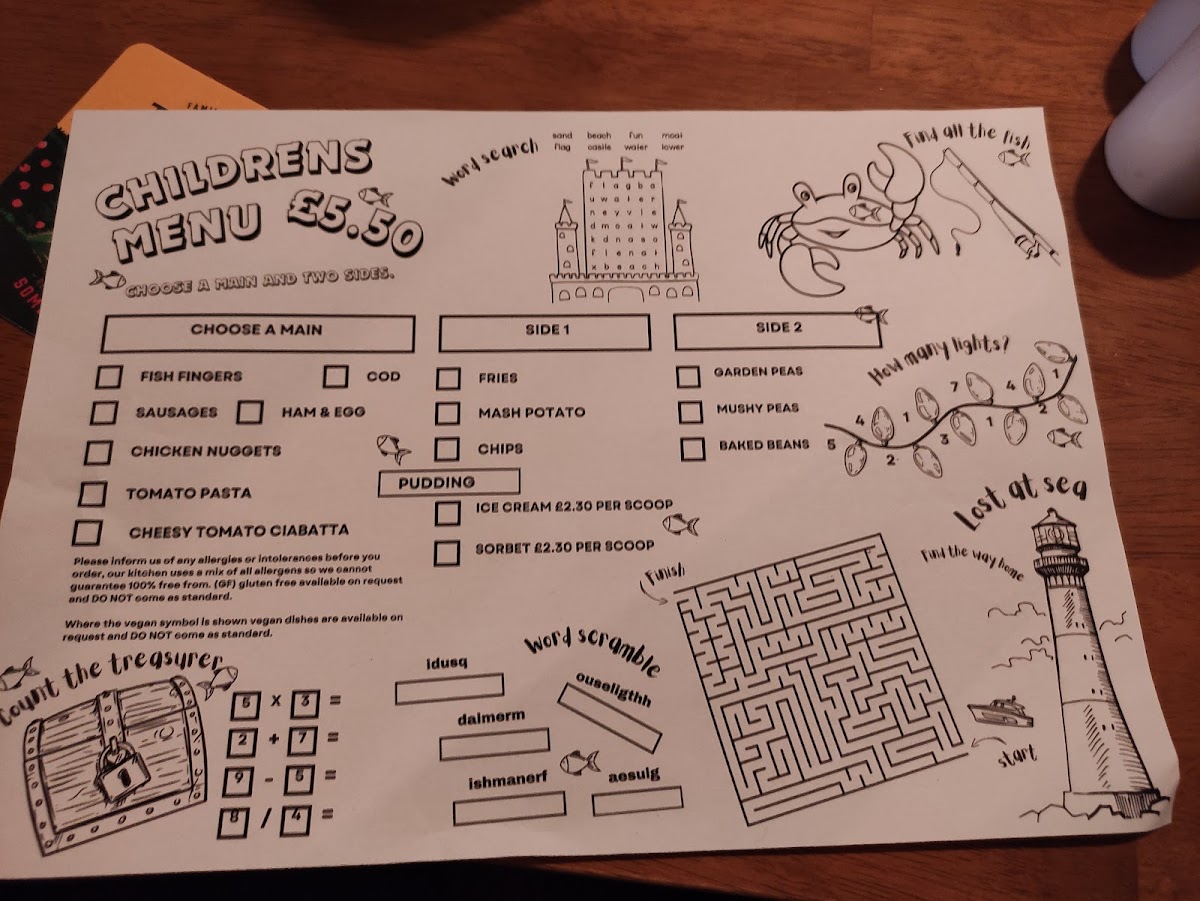 FAMI
SOM
CHILDRENS
MENU £5.50
CHOOSE A MAIN AND TWO SIDES.
Word search
sand beach fun moat
flag castle water tower
f l a g b a
u w a t e r
n e y v l e
d m o a t w
k d n a s o
x b e a c h
Find all the fish
CHOOSE A MAIN
FISH FINGERS COD
SAUSAGES HAM & EGG
CHICKEN NUGGETS
TOMATO PASTA
CHEESY TOMATO CIABATTA
SIDE 1
FRIES
MASH POTATO
CHIPS
SIDE 2
GARDEN PEAS
MUSHY PEAS
BAKED BEANS
PUDDING
ICE CREAM £2.30 PER SCOOP
SORBET £2.30 PER SCOOP
How many lights?
5 4 2 1 7 3 1 4 2 1
Please inform us of any allergies or intolerances before you
order, our kitchen uses a mix of all allergens so we cannot
guarantee 100% free from. (GF) gluten free available on request
and DO NOT come as standard.
Where the vegan symbol is shown vegan dishes are available on
request and DO NOT come as standard.
Count the treasurer
5 x 3 =
2 + 7 =
9 - 5 =
8 / 4 =
Word scramble
idusq
daimerm
ishmanerf
ouseligthh
aesulg
Lost at sea
Find the way home
Finish
start